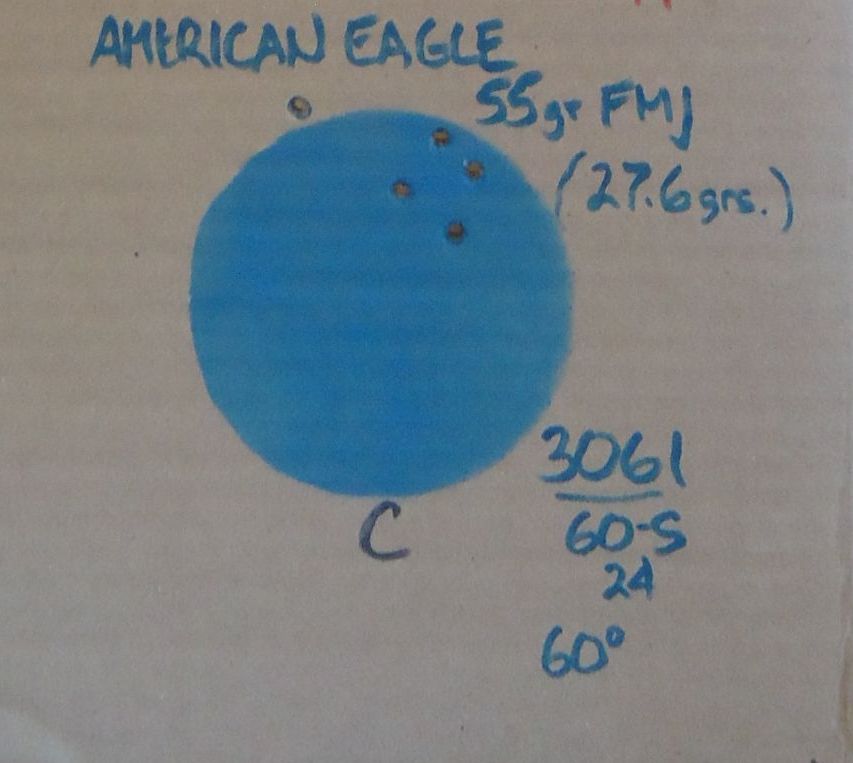 AMERICAN EAGLE
55gr FMJ
(27.6grs.)
3061
60-S
24
60°
C